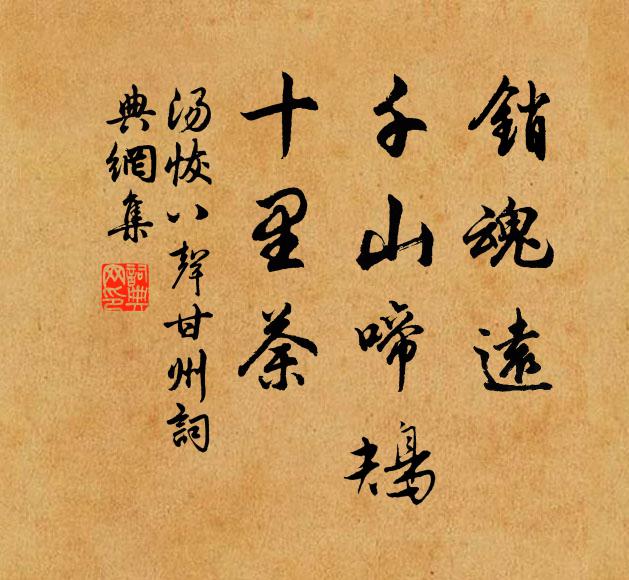 銷魂遠
千山啼鴂
十里荼
湯恢八聲甘州詞
典網集
詞典
网印